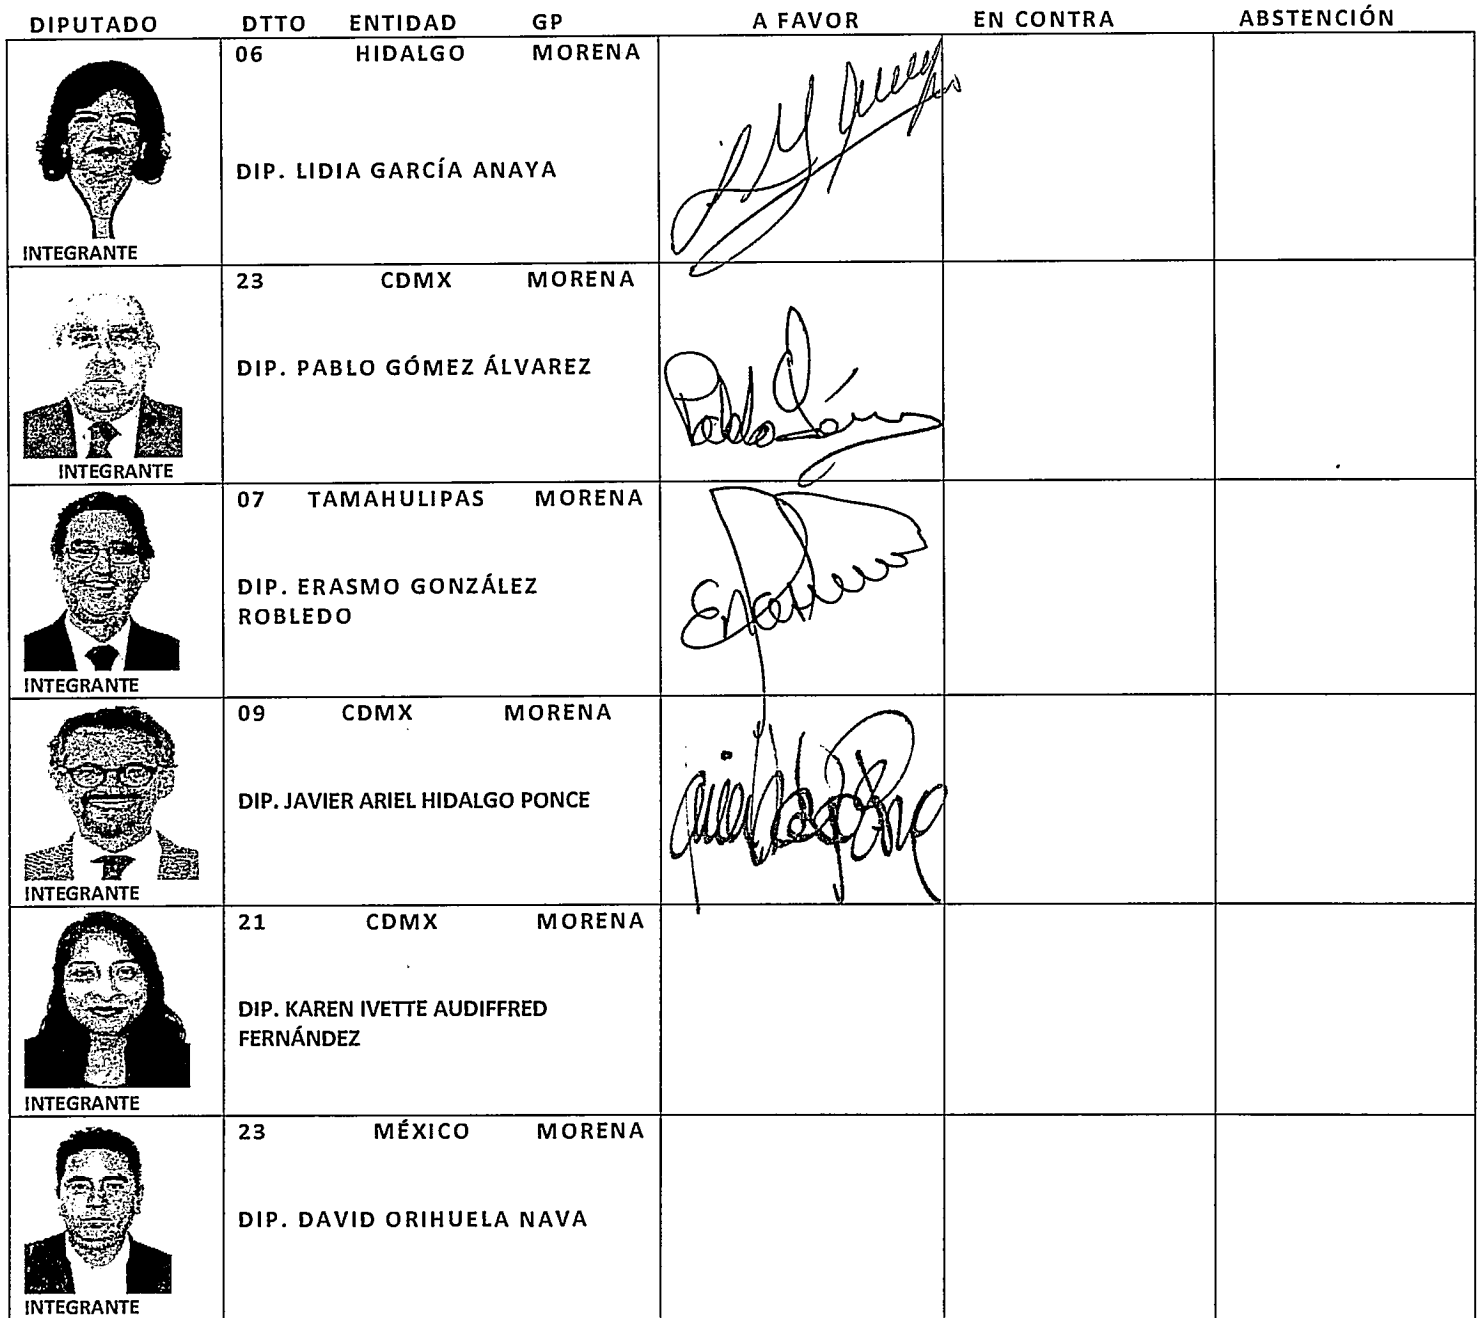 DIPUTADO DTTO ENTIDAD GP A FAVOR EN CONTRA ABSTENCIÓN
06 HIDALGO MORENA
DIP. LIDIA GARCÍA ANAYA
INTEGRANTE
23 CDMX MORENA
DIP. PABLO GÓMEZ ÁLVAREZ
Pablo Gómez
INTEGRANTE
07 TAMAHULIPAS MORENA
DIP. ERASMO GONZÁLEZ
ROBLEDO
Erasmo
INTEGRANTE
09 CDMX MORENA
DIP. JAVIER ARIEL HIDALGO PONCE
INTEGRANTE
21 CDMX MORENA
DIP. KAREN IVETTE AUDIFFRED
FERNÁNDEZ
INTEGRANTE
23 MÉXICO MORENA
DIP. DAVID ORIHUELA NAVA
INTEGRANTE